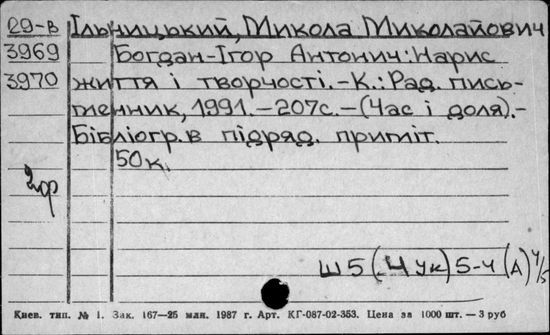 29-В Ільницький, Микола Миколайович
3969 Богдан-Ігор Антонич: Нарис
3970 життя і творчості.-К.: Рад. пись-
менник, 1991.-207с.-(Час і доля).-
Бібліогр. в підряд. приміт.
50к.
2 ор
Ш5(4Ук)5-4(А) 4/5
Киев. тип. № 1. Зак. 167—25 мая. 1987 г. Арт. КГ-087-02-353. Цена за 1000 шт. — 3 руб